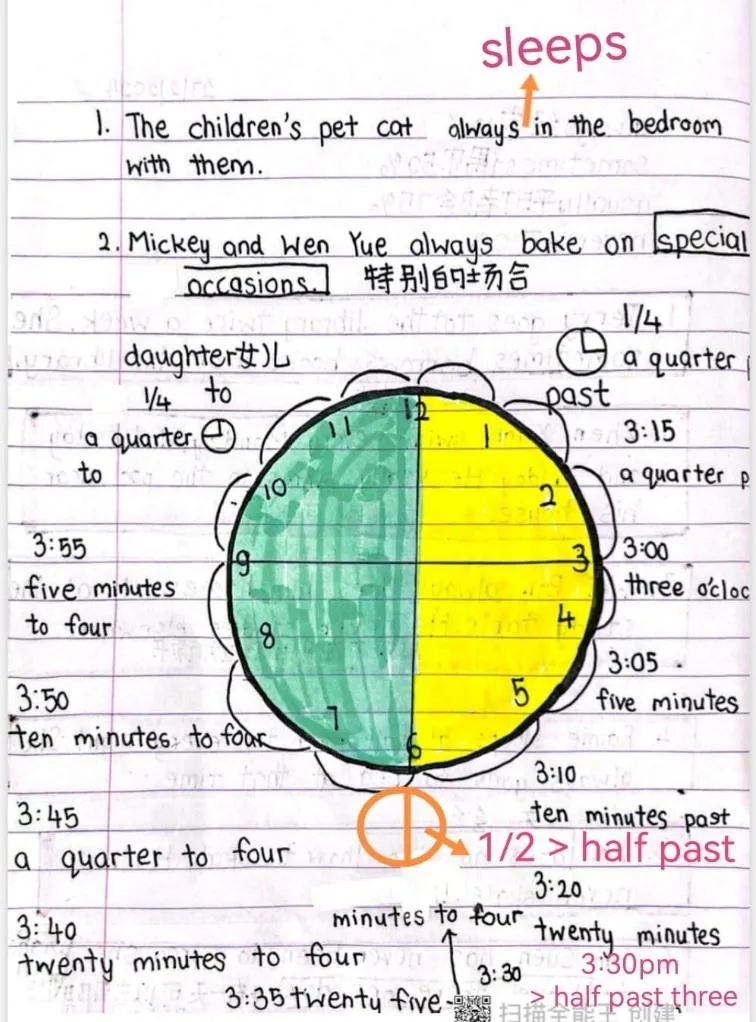 sleeps
1. The children's pet cat always in the bedroom
with them.
2. Mickey and Wen Yue always bake on special
occasions. 特别的场合
daughter女儿
1/4 to
a quarter
to
1/4
a quarter
past
3:15
a quarter p
12
11
1
10
2
9
3
8
4
7
5
6
3:00
three o'cloc
3:55
five minutes
to four
3:05
five minutes
3:50
ten minutes to four
3:10
ten minutes past
3:45
a quarter to four
1/2 > half past
3:20
twenty minutes
3:40
twenty minutes to four
minutes to four
3:30
3:35 twenty five
3:30pm
> half past three
扫描全能王 创建